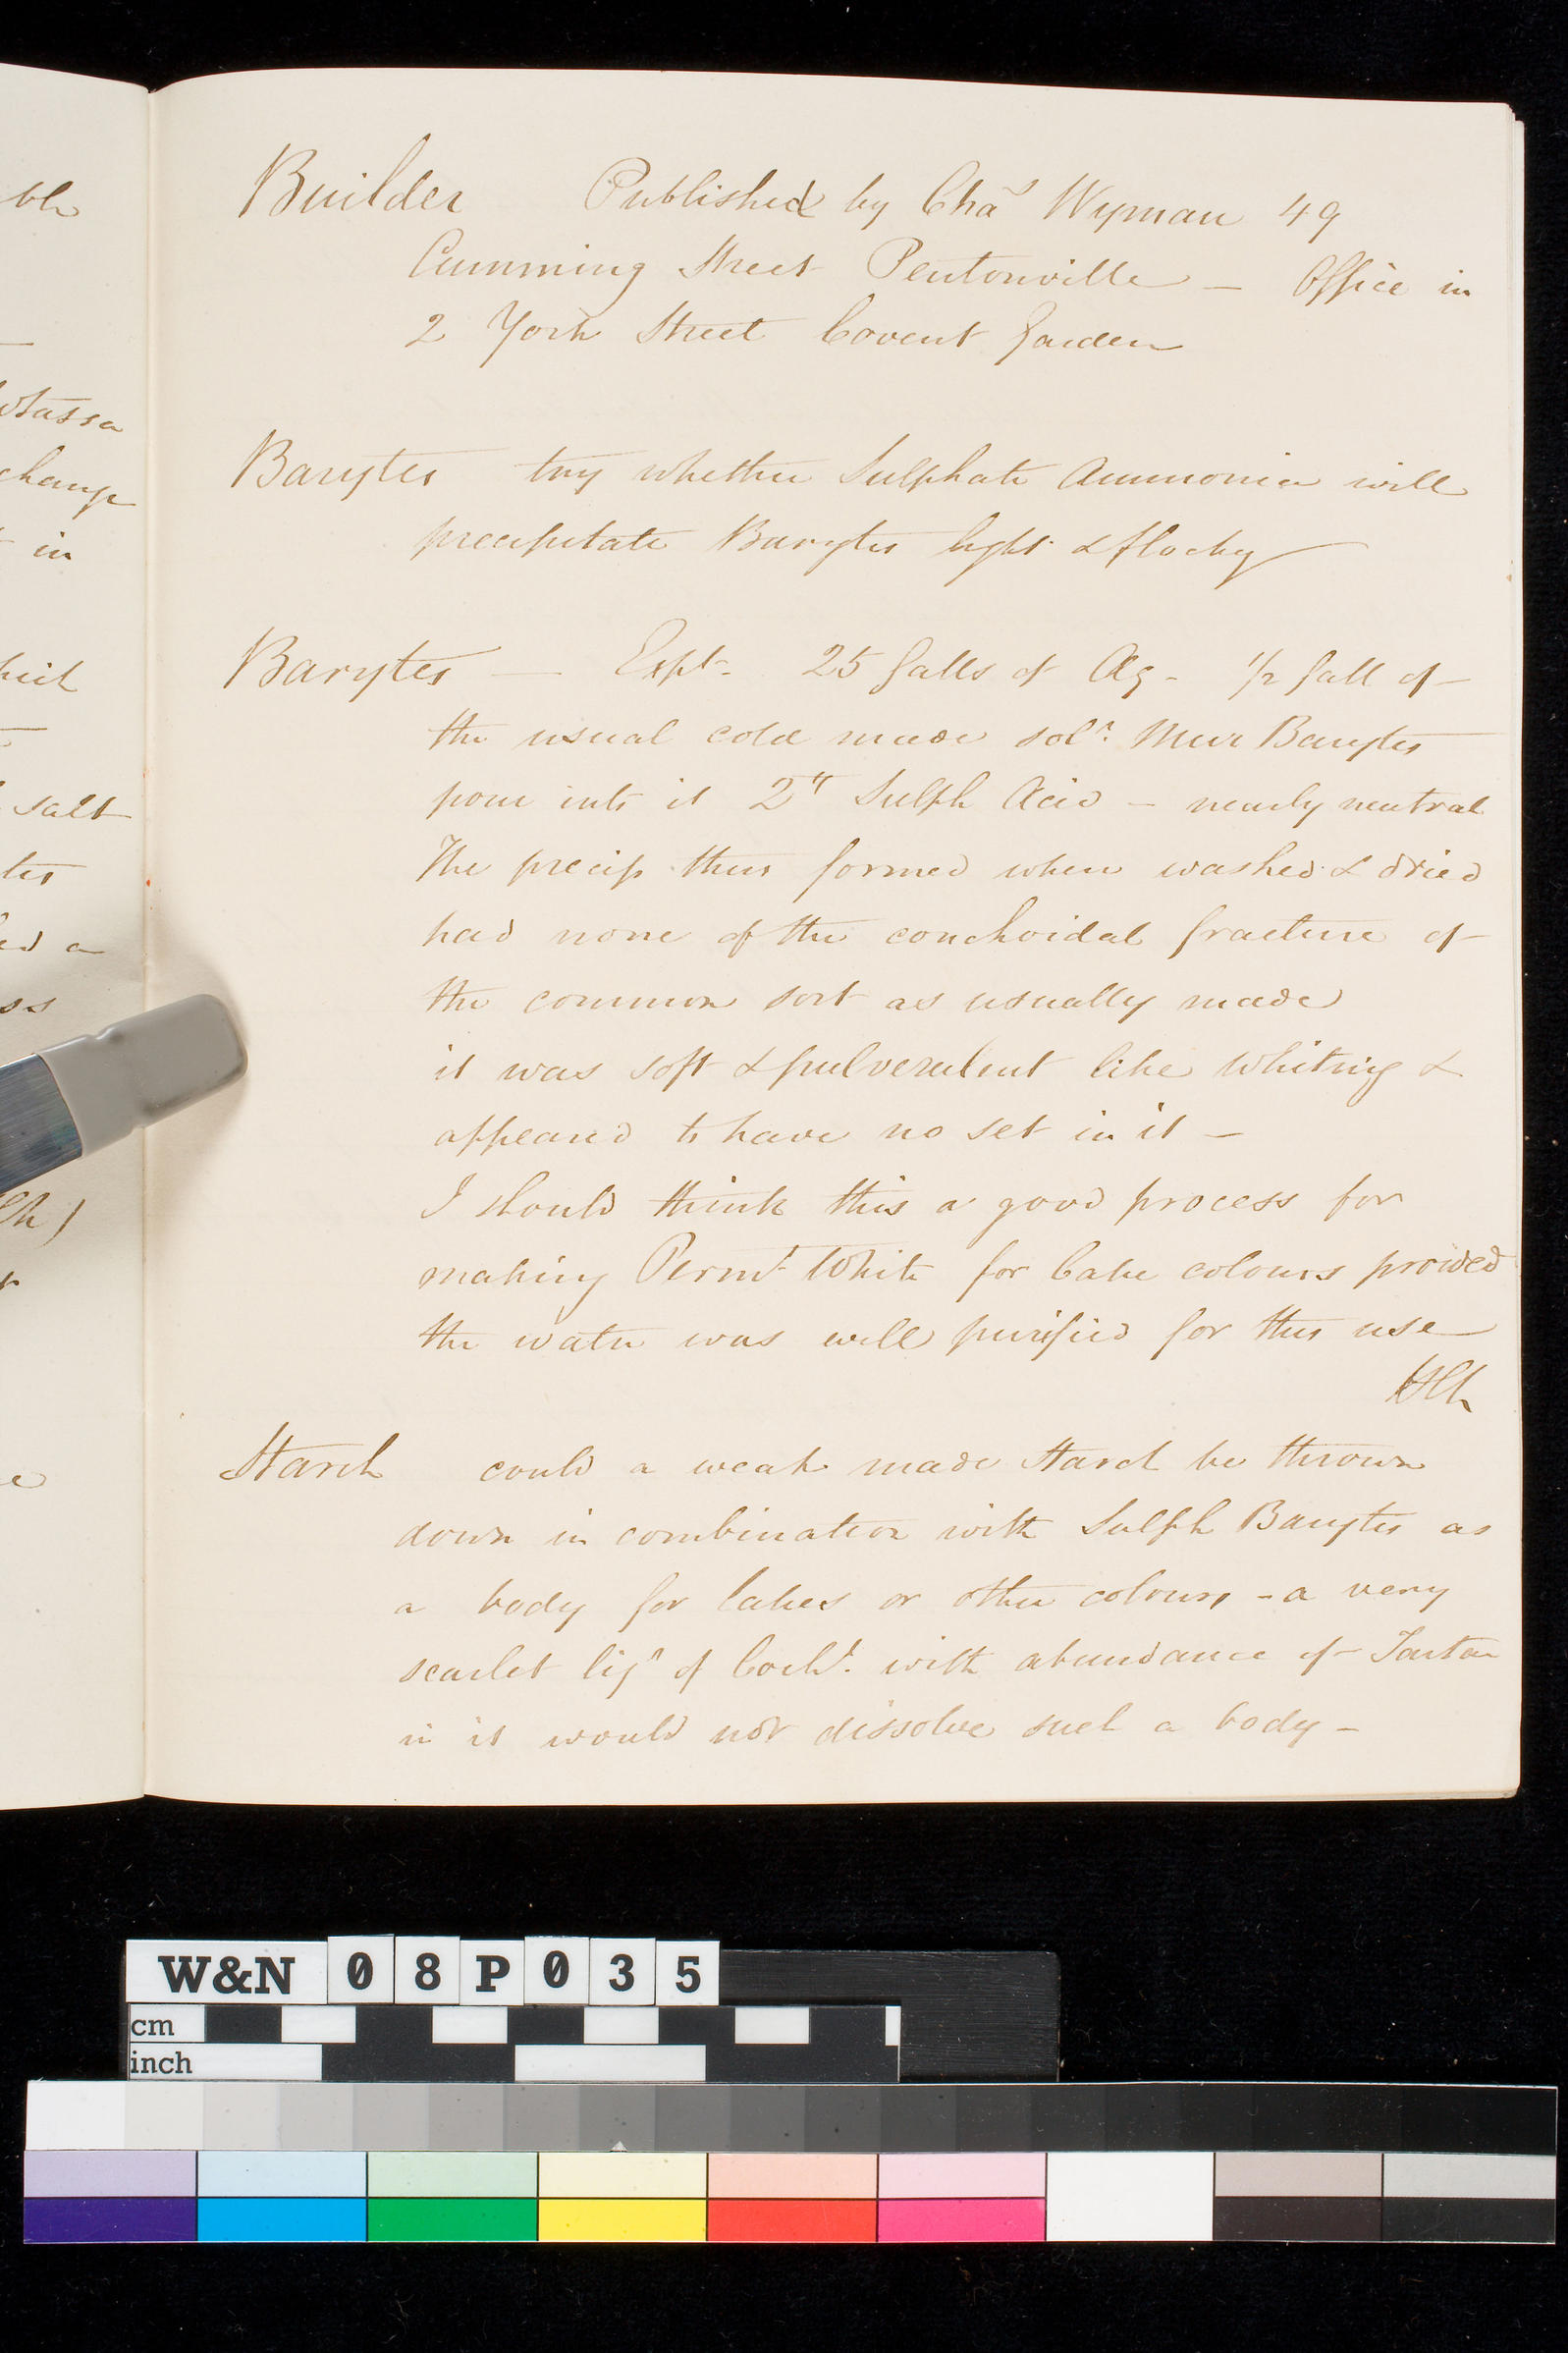 Builder Published by Chas Wyman 49
Cumming Street Pentonville – Office in
2 York Street Covent Garden
Barytes try whether Sulphate Ammonia will
precipitate Barytes light & flocky
Barytes — Expt– 25 Galls of Aq – 1/2 Gall of
the usual cold made soln. Mur Barytes
pour into it 2 Sulph Acid – nearly neutral
The precip thus formed when washed & dried
had none of the conchoidal fracture of
the common sort as usually made
it was soft & pulverulent like Whiting &
appeared to have no set in it –
I should think this a good process for
making Permt White for Cake colours proided
the water was well purified for this use
Starch could a weak made Starch be thrown
down in combination with Sulph Barytes as
a body for lakes or other colours – a very
scarlet liqr of Cochl. with abundance of Tartar
in it would not dissolve such a body –
ble
change
in
salt
W&N 08P035
cm
inch